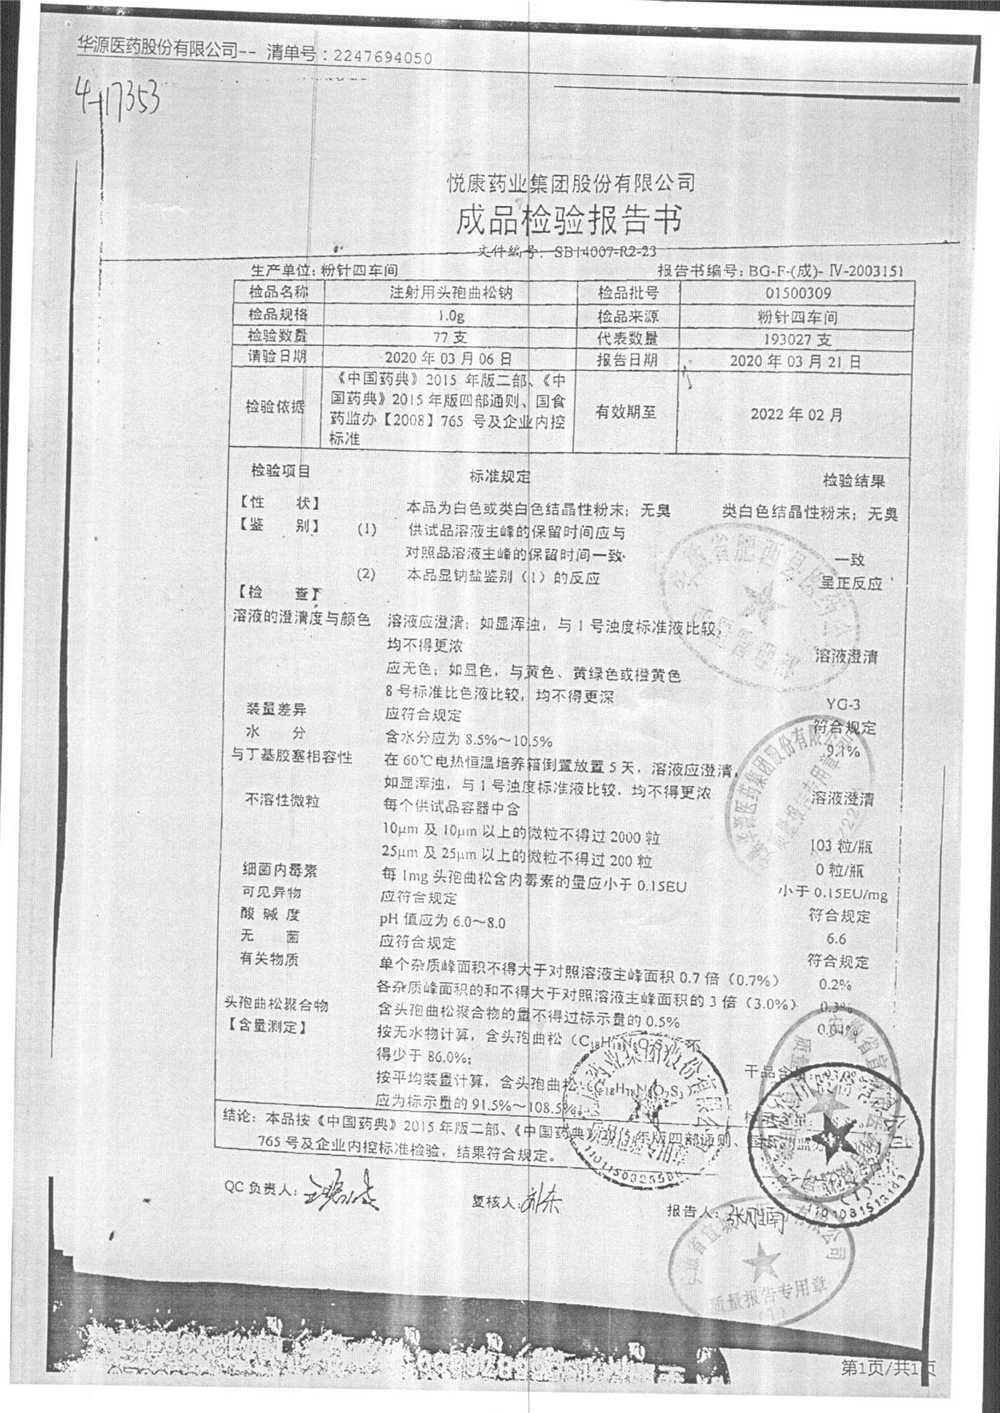 华源医药股份有限公司-- 清单号：2247694050
4-117353
悦康药业集团股份有限公司
成品检验报告书
文件编号：SB14007-R2-23
生产单位：粉针四车间 报告书编号：BG-F-(成)-Ⅳ-2003151
检品名称 注射用头孢曲松钠 检品批号 01500309
检品规格 1.0g 检品来源 粉针四车间
检验数量 77 支 代表数量 193027 支
请验日期 2020 年 03 月 06 日 报告日期 2020 年 03 月 21 日
检验依据 《中国药典》2015 年版二部、《中
国药典》2015 年版四部通则、国食
药监办【2008】765 号及企业内控
标准
有效期至 2022 年 02 月
检验项目 标准规定 检验结果
【性 状】 本品为白色或类白色结晶性粉末；无臭 类白色结晶性粉末；无臭
【鉴 别】 (1) 供试品溶液主峰的保留时间应与
对照品溶液主峰的保留时间一致. 一致
(2) 本品显钠盐鉴别（1）的反应 呈正反应
【检 查】
溶液的澄清度与颜色 溶液应澄清；如显浑浊，与 1 号浊度标准液比较，
均不得更浓 溶液澄清
应无色；如显色，与黄色、黄绿色或橙黄色
8 号标准比色液比较，均不得更深 YG-3
装量差异 应符合规定 符合规定
水 分 含水分应为 8.5%～10.5% 9.1%
与丁基胶塞相容性 在 60℃电热恒温培养箱倒置放置 5 天，溶液应澄清，
如显浑浊，与 1 号浊度标准液比较，均不得更浓 溶液澄清
不溶性微粒 每个供试品容器中含
10μm 及 10μm 以上的微粒不得过 2000 粒 103 粒/瓶
25μm 及 25μm 以上的微粒不得过 200 粒 0 粒/瓶
细菌内毒素 每 1mg 头孢曲松含内毒素的量应小于 0.15EU 小于 0.15EU/mg
可见异物 应符合规定 符合规定
酸 碱 度 pH 值应为 6.0～8.0 6.6
无 菌 应符合规定 符合规定
有关物质 单个杂质峰面积不得大于对照溶液主峰面积 0.7 倍（0.7%） 0.2%
各杂质峰面积的和不得大于对照溶液主峰面积的 3 倍（3.0%） 0.3%
头孢曲松聚合物 含头孢曲松聚合物的量不得过标示量的 0.5% 0.04%
【含量测定】 按无水物计算，含头孢曲松（C18H18N8O7S3）不
得少于 86.0%； 干品含
按平均装量计算，含头孢曲松（C18H18N8O7S3）
应为标示量的 91.5%～108.5%
结论：本品按《中国药典》2015 年版二部、《中国药典》2015 年版四部通则、国
765 号及企业内控标准检验，结果符合规定。
QC 负责人： 复核人： 报告人：
质量报告专用章
第1页/共1页